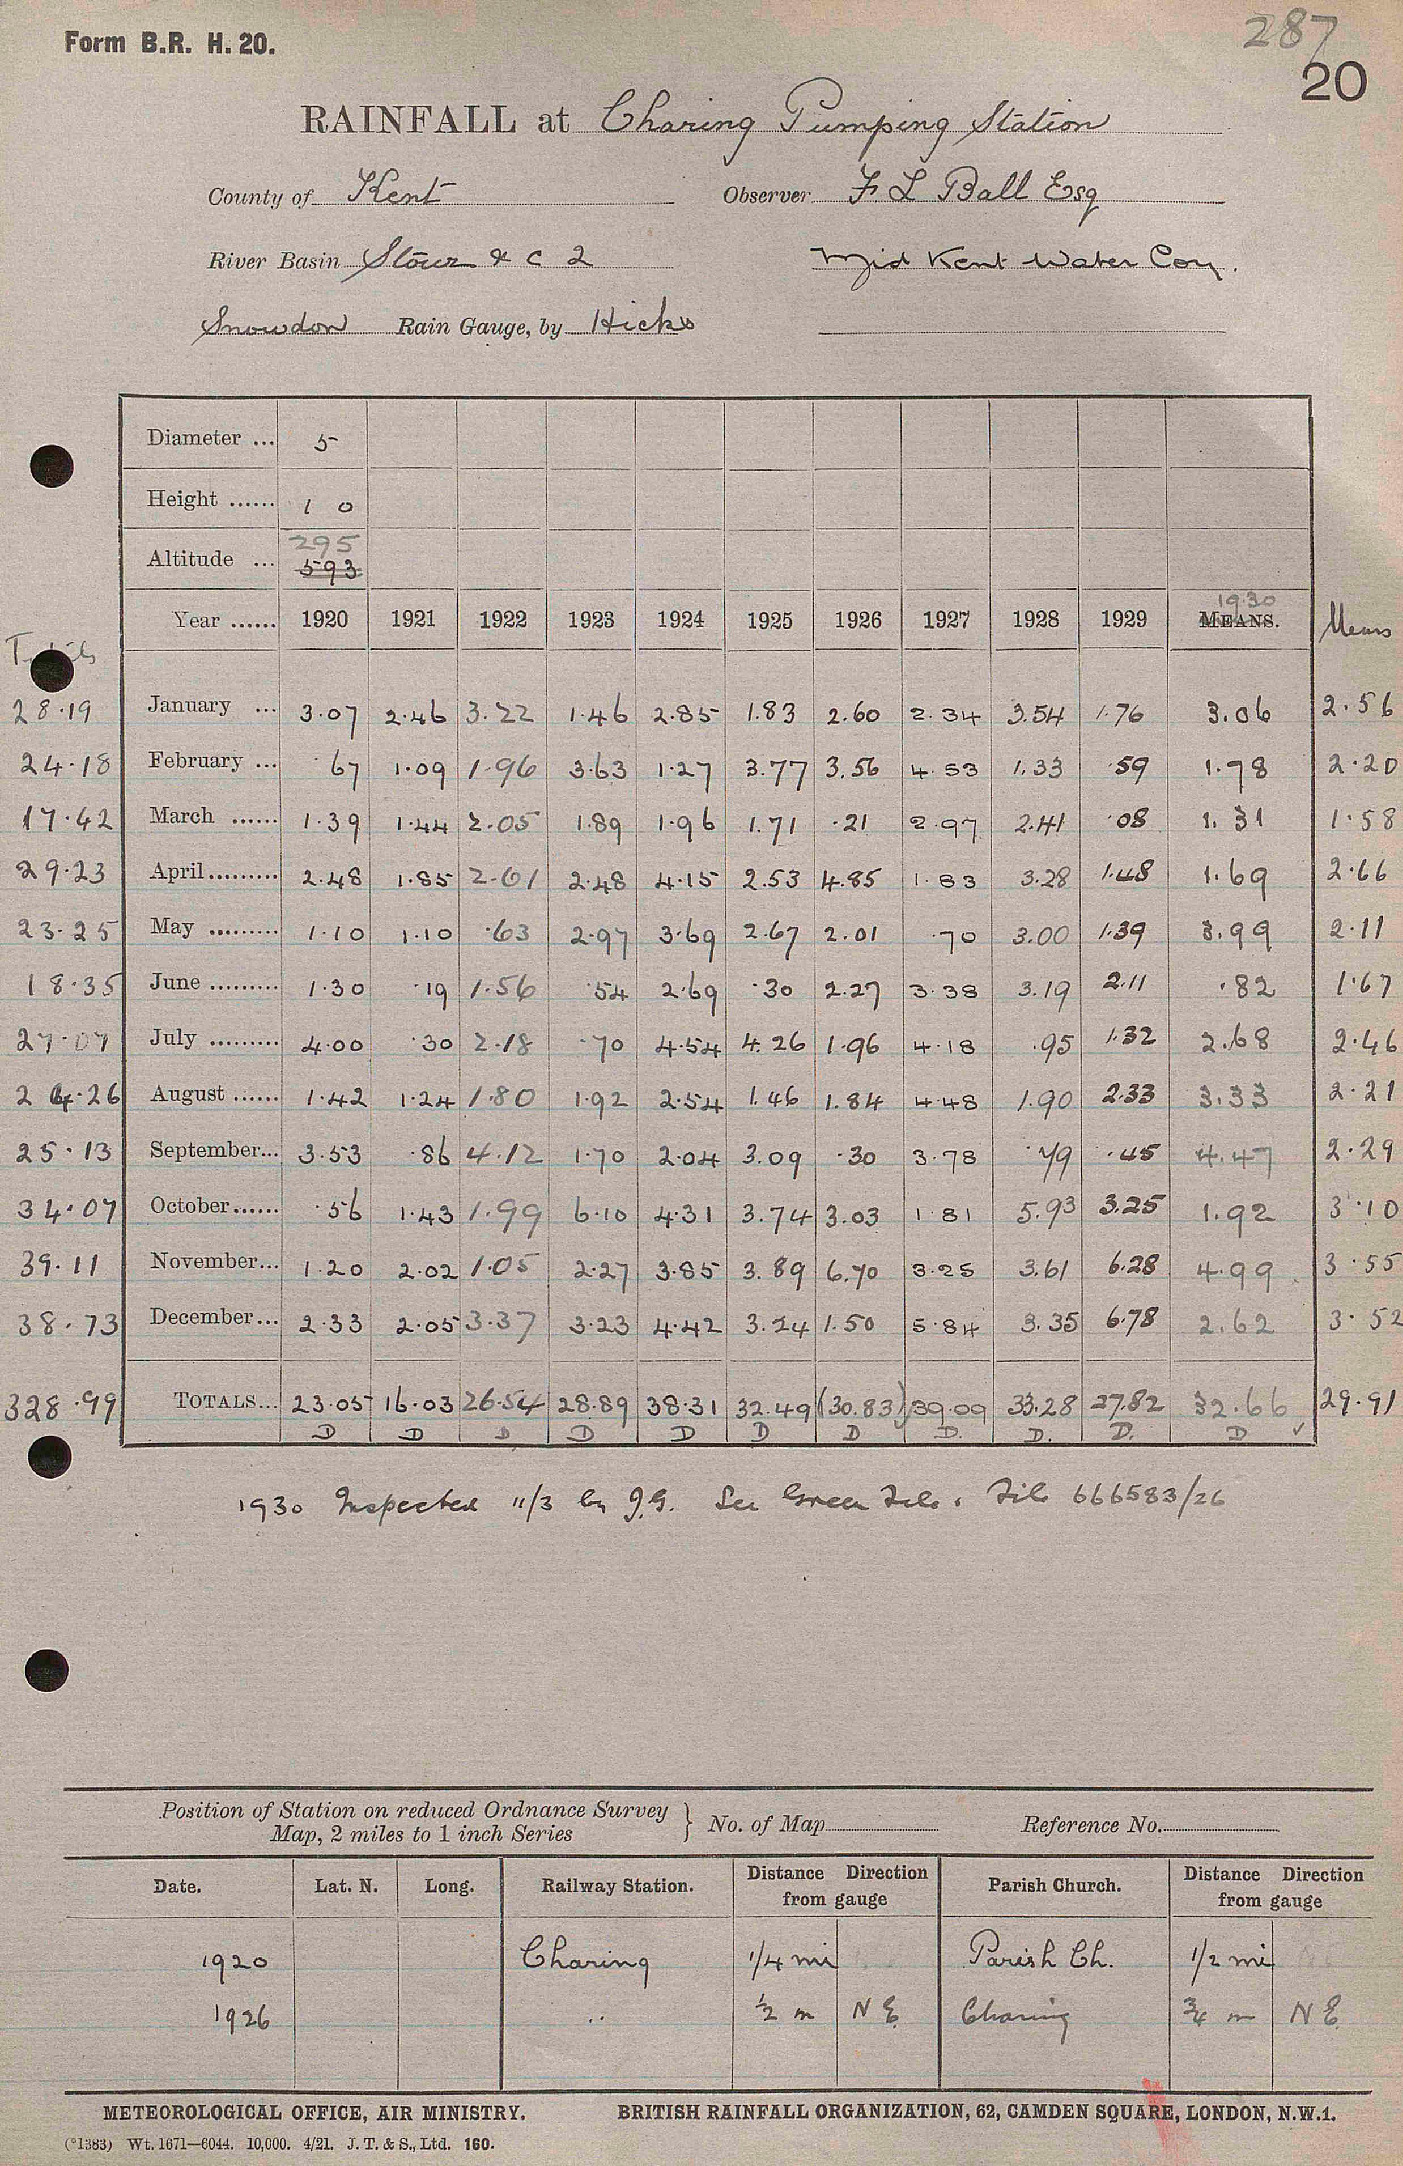 Form B.R. H. 20.
287
20
RAINFALL at Charing Pumping Station
County of Kent Observer F L Ball Esq
River Basin Stour & C 2 Mid Kent Water Coy.
Snowdon Rain Gauge, by Hicks
Diameter ... 5
Height ...... 1 0
295
Altitude ... 593
1930
Year ...... 1920 1921 1922 1923 1924 1925 1926 1927 1928 1929 MEANS. Means
28.19 January ... 3.07 2.46 3.22 1.46 2.85 1.83 2.60 2.34 3.54 1.76 3.06 2.56
24.18 February ... .67 1.09 1.96 3.63 1.27 3.77 3.56 4.53 1.33 .59 1.78 2.20
17.42 March ...... 1.39 1.44 2.05 1.89 1.96 1.71 .21 2.97 2.41 .08 1.31 1.58
29.23 April......... 2.48 1.85 2.61 2.48 4.15 2.53 4.85 1.83 3.28 1.48 1.69 2.66
23.25 May ......... 1.10 1.10 .63 2.97 3.69 2.67 2.01 .70 3.00 1.39 3.99 2.11
18.35 June ......... 1.30 .19 1.56 .54 2.69 .30 2.27 3.38 3.19 2.11 .82 1.67
27.07 July ......... 4.00 .30 2.18 .70 4.54 4.26 1.96 4.18 .95 1.32 2.68 2.46
24.26 August ...... 1.42 1.24 1.80 1.92 2.54 1.46 1.84 4.48 1.90 2.33 3.33 2.21
25.13 September... 3.53 .86 4.12 1.70 2.04 3.09 .30 3.78 .79 .45 4.47 2.29
34.07 October...... .56 1.43 1.99 6.10 4.31 3.74 3.03 1.81 5.93 3.25 1.92 3.10
39.11 November... 1.20 2.02 1.05 2.27 3.85 3.89 6.70 3.25 3.61 6.28 4.99 3.55
38.73 December... 2.33 2.05 3.37 3.23 4.42 3.24 1.50 5.84 3.35 6.78 2.62 3.52
328.99 TOTALS... 23.05 16.03 26.54 28.89 38.31 32.49 (30.83) 39.09 33.28 27.82 32.66 29.91
D D D D D D D D. D. D. D ✓
1930 Inspected 11/3 by J.G. See Green File. File 666583/26
Position of Station on reduced Ordnance Survey
Map, 2 miles to 1 inch Series } No. of Map Reference No.
Date. Lat. N. Long. Railway Station. Distance Direction from gauge Parish Church. Distance Direction from gauge
1920 Charing 1/4 mi Parish Ch. 1/2 mi
1926 .. 1/2 m N E Charing 3/4 m N E
METEOROLOGICAL OFFICE, AIR MINISTRY. BRITISH RAINFALL ORGANIZATION, 62, CAMDEN SQUARE, LONDON, N.W.1.
(*1383) Wt. 1671—6044. 10,000. 4/21. J. T. & S., Ltd. 160.